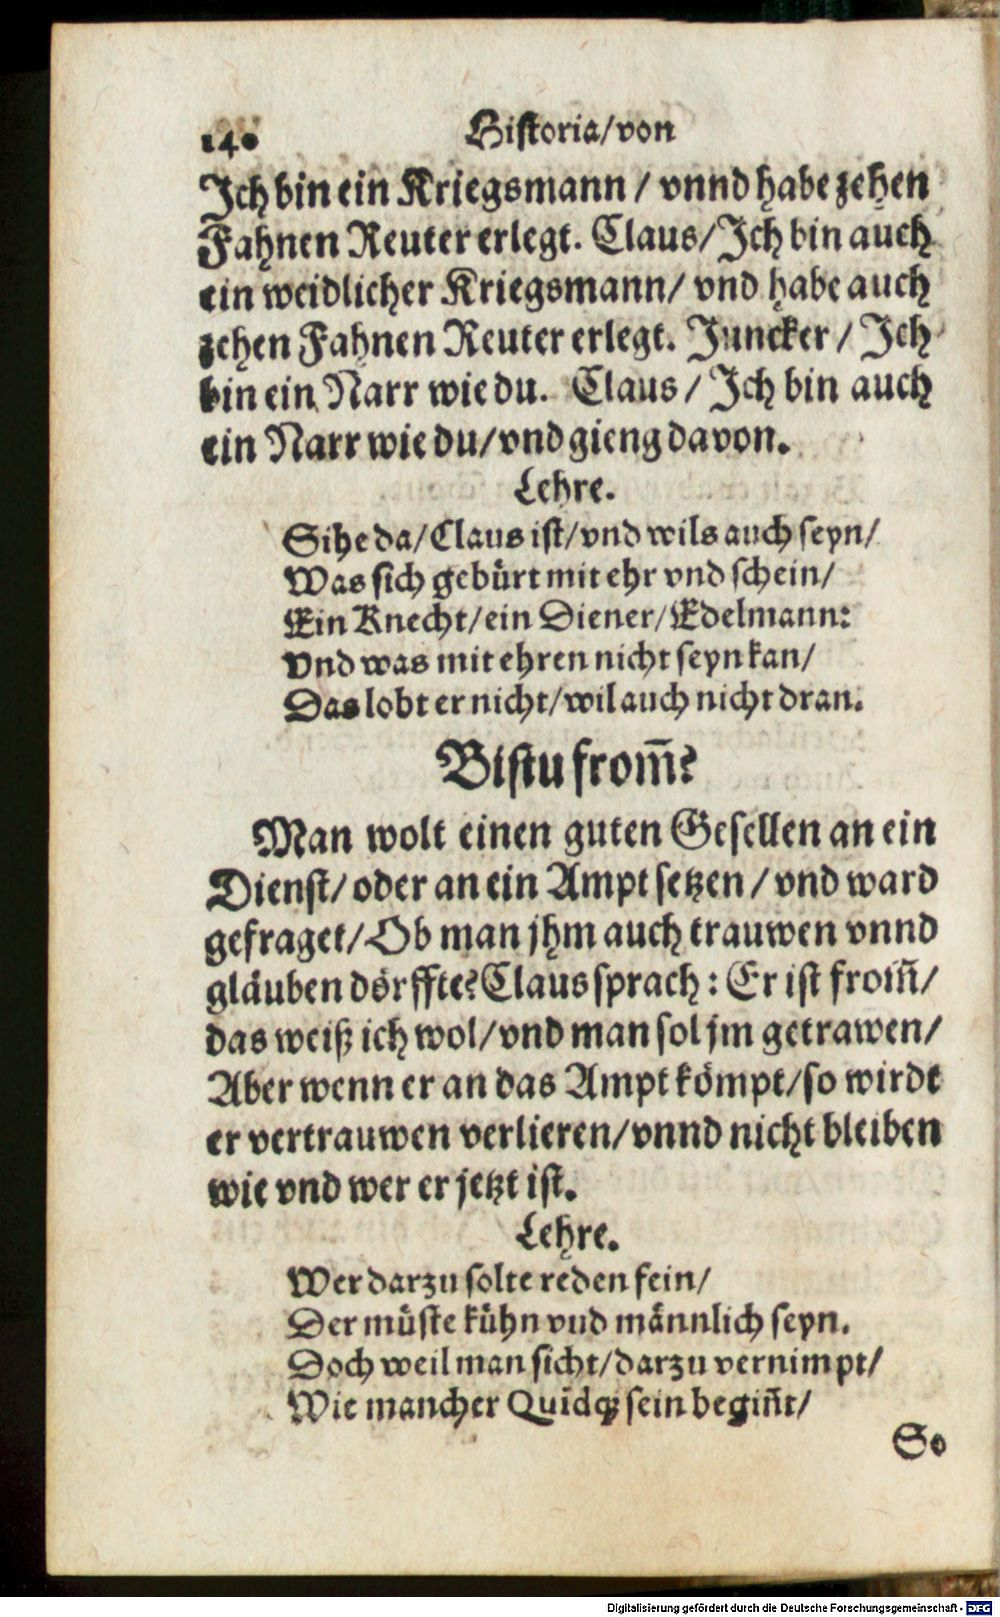 140 Historia/von
Ich bin ein Kriegsmann / vnnd habe zehen
Fahnen Reuter erlegt. Claus/Ich bin auch
ein weidlicher Kriegsmann/ vnd habe auch
zehen Fahnen Reuter erlegt. Juncker / Ich
bin ein Narr wie du. Claus / Ich bin auch
ein Narr wie du/vnd gieng davon.
Lehre.
Sihe da/Claus ist/vnd wils auch seyn/
Was sich gebürt mit ehr vnd schein/
Ein Knecht/ein Diener/Edelmann:
Vnd was mit ehren nicht seyn kan/
Das lobt er nicht/wil auch nicht dran.
Bistu from̃?
Man wolt einen guten Gesellen an ein
Dienst/ oder an ein Ampt setzen / vnd ward
gefraget/Ob man jhm auch trauwen vnnd
gläuben dörffte? Claus sprach: Er ist from̃/
das weiß ich wol/vnd man sol jm getrawen/
Aber wenn er an das Ampt kömpt/so wirdt
er vertrauwen verlieren/vnnd nicht bleiben
wie vnd wer er jetzt ist.
Lehre.
Wer darzu solte reden fein/
Der müste kühn vnd männlich seyn.
Doch weil man sicht/darzu vernimpt/
Wie mancher Quidꝗ sein begiñt/
So
Digitalisierung gefördert durch die Deutsche Forschungsgemeinschaft - DFG